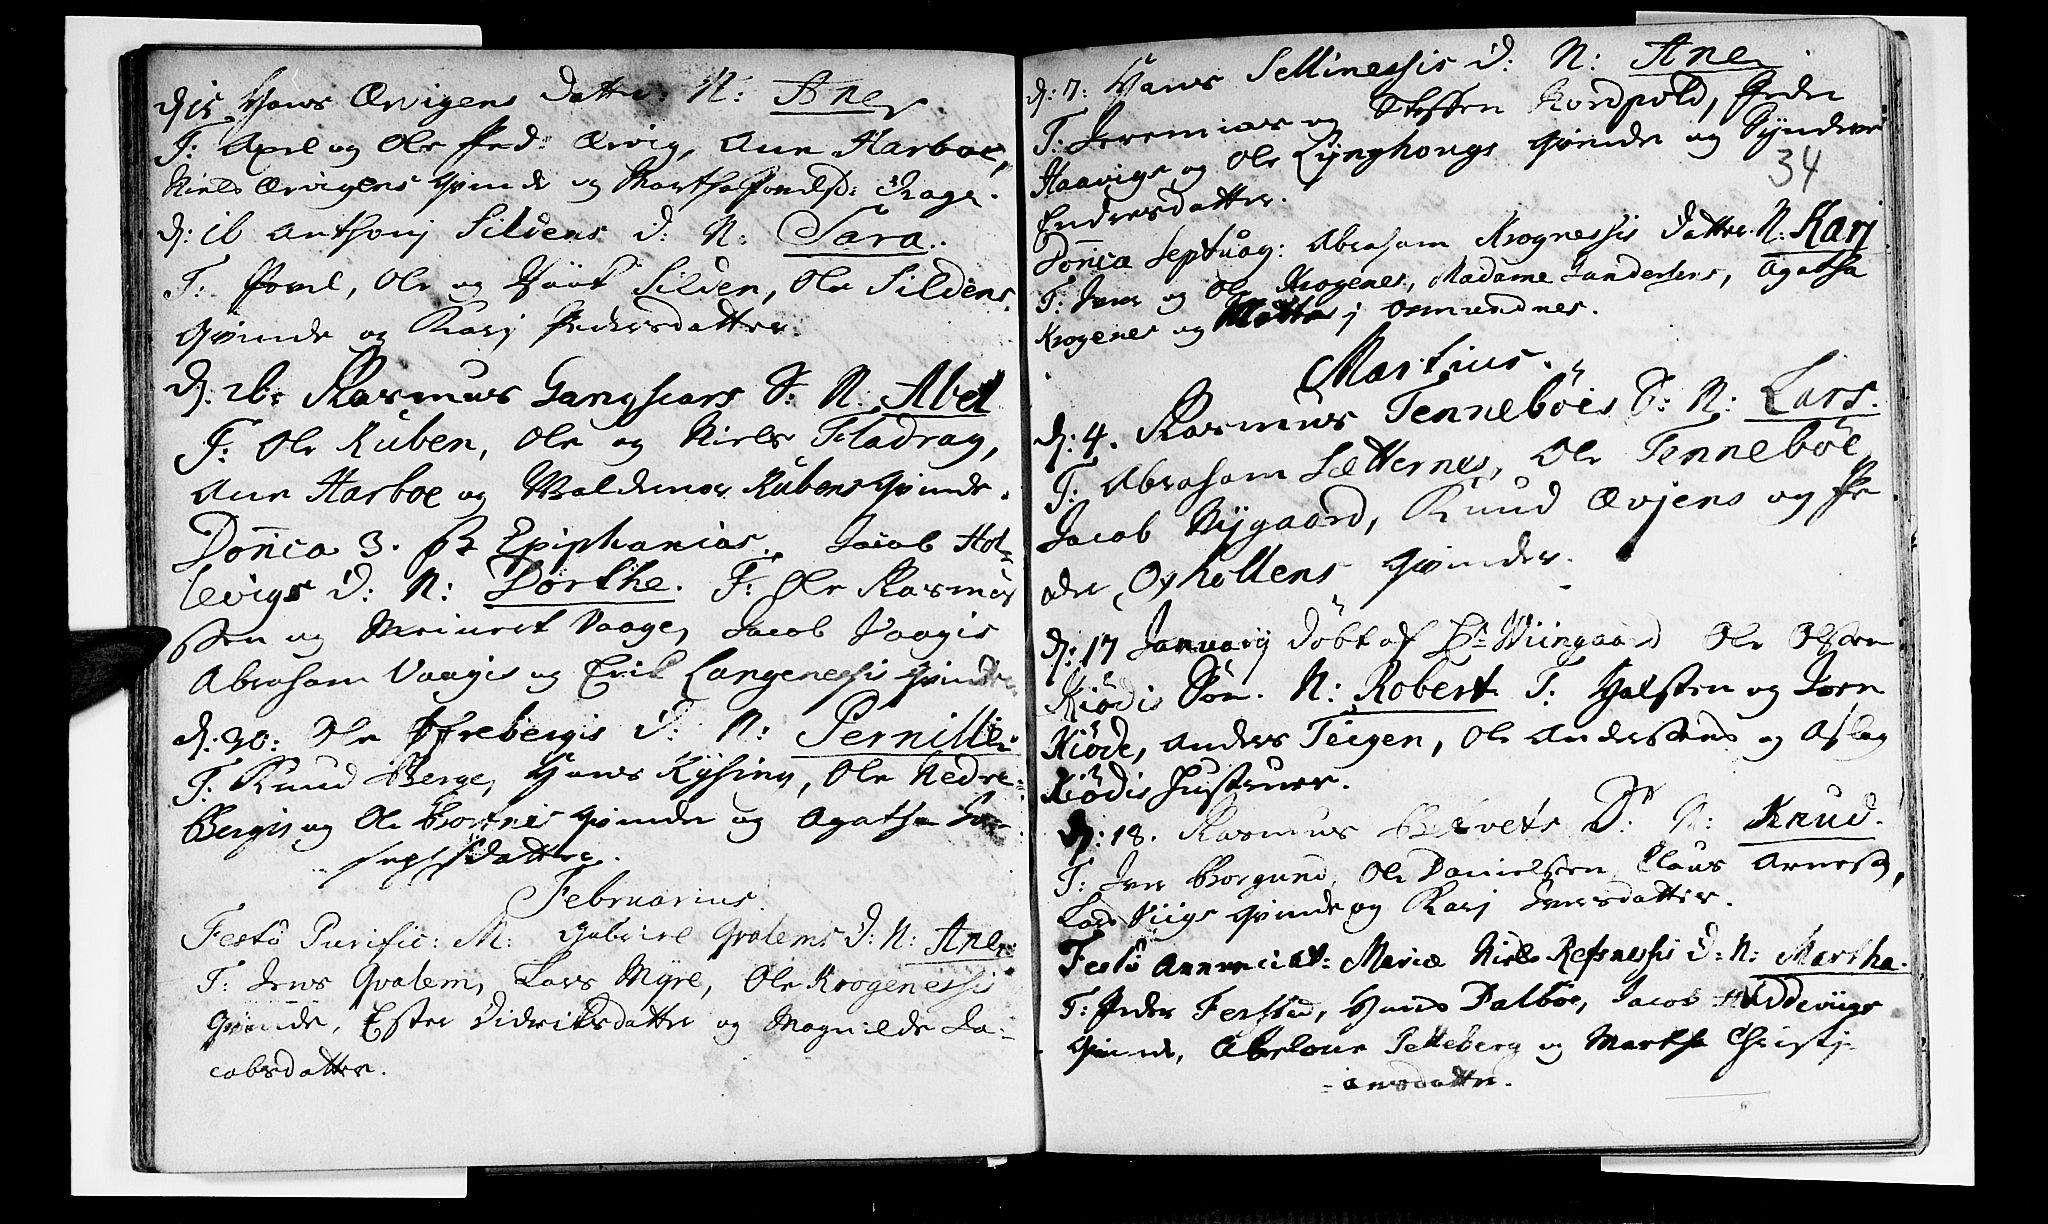 d: 15 Hans Ervigens Datter N: Ane
T: Axel og Ole Ped: Ervig, Ane Harboe,
Niels Ervigens Qvinde og Martha Povelsd: Rage.
d: 16 Anthonj Sildens D: N: Sara.
T: Povel, Ole og Silden, Ole Sildens
Qvinde og Karj Pedersdatter.
d: 26: Rasmus Gangsøers S: N: Abel
T: Ole Ruben, Ole og Niels Fladrag,
Ane Harboe og Waldemar Rubens Qvinde.
Don̄ica 3. p Epiphanias. Jacob Hol-
levigs D: N: Dorthe. T: Ole Rasmus
ssen og Meinert Vaage, Jacob Vaagis
Abraham Vaagis og Erik Langenessis Qvinder
d: 30: Ole Øfrebergis D: N: Pernille.
T: Knud Berge, Hans Kysing, Ole Nedre-
Bergis og Ole Qvinder og Agatha Jo-
sephsdatter.
Februarius.
Festo Purific: M: Gabriel Qvalems D: N: Ane.
T: Jens Qvalem, Lars Myre, Ole Krogenessis
Qvinde, Ester Didriksdatter og Magnilde Ja-
cobsdatter.
d: 7: Hans Sellinessis D: N: Ane
T: Jeremias og Steffen Nordpold, Peder
Haavigs og Ole Lynghougs Qvinder og Synneve
34
Endresdatter.
Don̄ica Septuag: Abraham Krognessis Datter N: Karj
T: Iver og Ole Krogenes, Madame Sandersens, Agatha
Krogenes og Mette j Osmundnes.
Martius.
d: 4. Rasmus Tennebøes S: N: Lars.
T: Abraham Sætternes, Ole Tennebøe
Jacob Nygaard, Knud Ævjens og Pe
der Oxhollens Qvinder.
d: 17 Januarij døbt af Hr Wiingaard Ole Olsen
Kiødis Søn. N: Robert T: Halsten og Jørn
Kiøde, Anders Teigen, Ole Andersens og Aslag
Kiødis Hustruer.
d: 18. Rasmus Barvets D: N: Knud.
T: Iver Borgund, Ole Danielsen, Claus Arnesen,
Lars Viigs Qvinde og Karj Iversdatter.
Festo Annunciat: Mariæ Niels Refsnessis D: N: Martha.
T: Peder Ferstad, Hans Dalbøe, Jacob Hiddeviigs
Qvinde, Abelone Tetteberg og Martha Christj-
ansdatter.